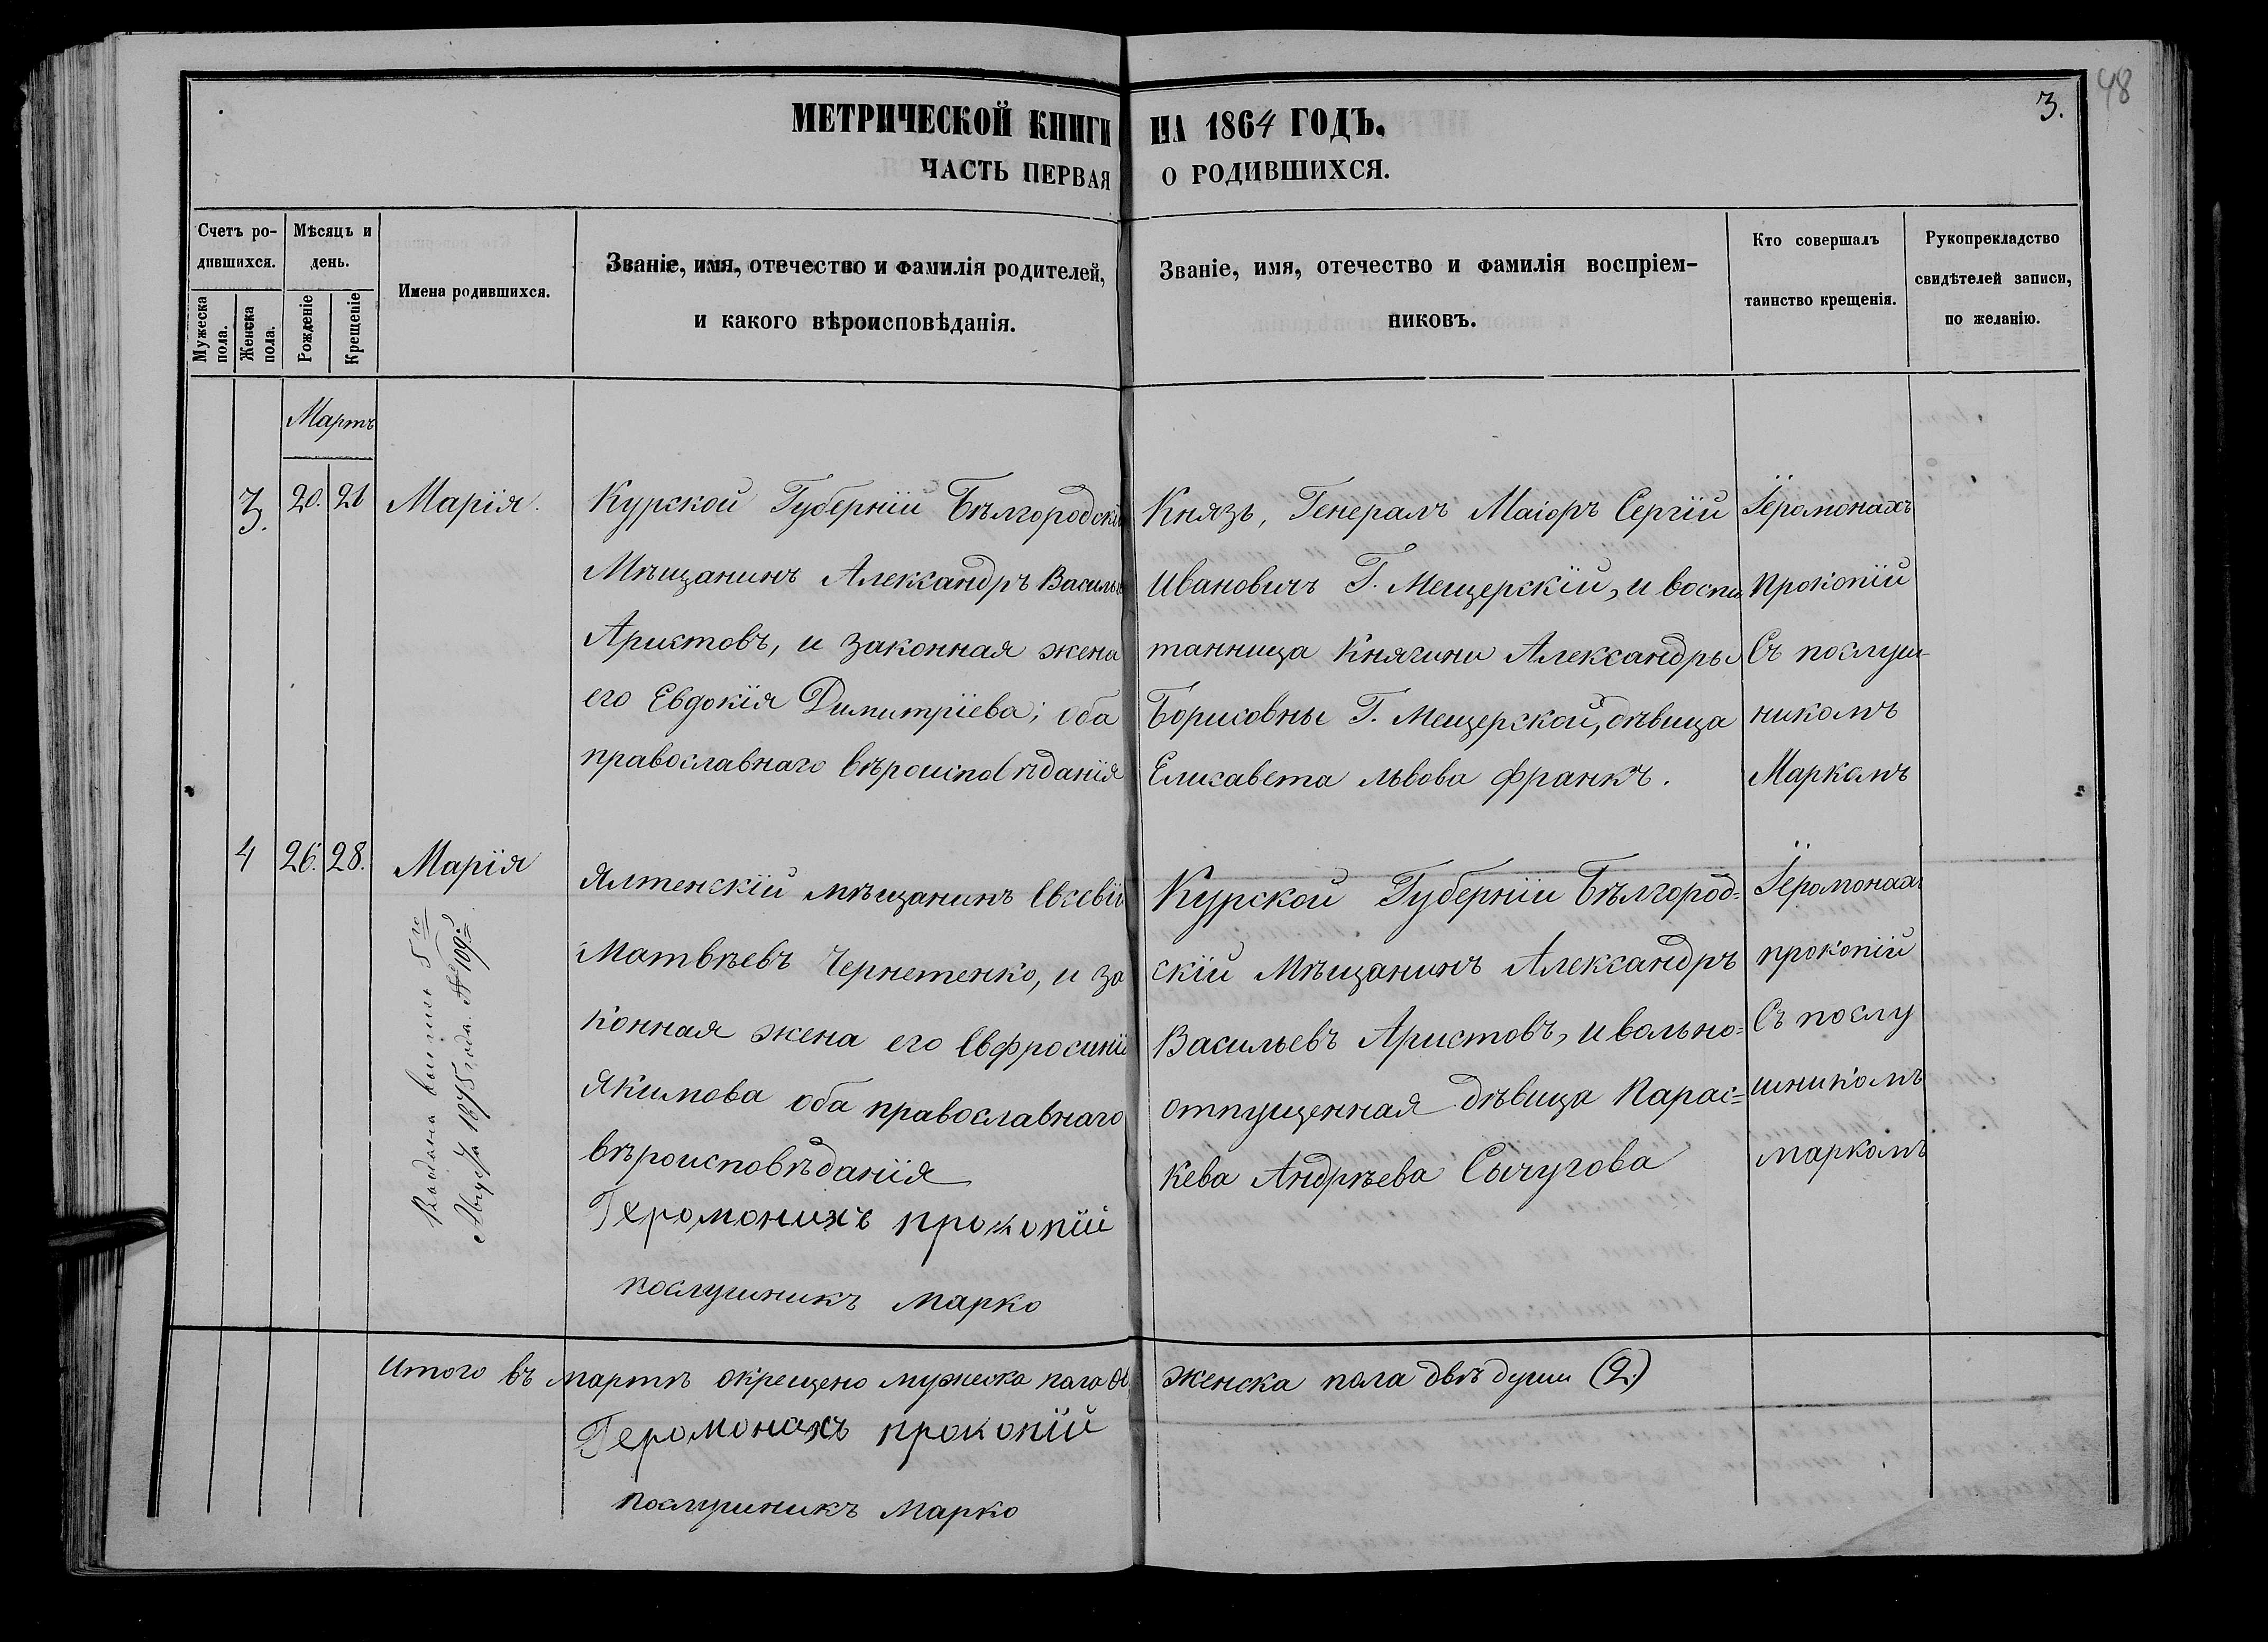 48
3.
МЕТРИЧЕСКОЙ КНИГИ НА 1864 ГОДЪ.
ЧАСТЬ ПЕРВАЯ О РОДИВШИХСЯ.
Счетъ ро-
дившихся.
Мужеска
пола.
Женска
пола.
Мѣсяць и
день.
Рожденіе
Крещеніе
Имена родившихся.
Званіе, имя, отечество и фамилія родителей,
и какого вѣроисповѣданія.
Званіе, имя, отечество и фамилія воспріем-
никовъ.
Кто совершалъ
таинство крещенія.
Рукоприкладство
свидѣтелей записи,
по желанію.
Мартъ
3. 20. 21 Марія.
Курской Губерніи Бѣлгородскій
Мѣщанинъ Александръ Василье
Аристовъ, и законная жена
его Евдокія Димитріева; оба
православнаго вѣроисповѣданія
Князь, Генералъ Маіоръ Сергій
Ивановичъ Г. Мещерскій, и воспи
танница Княгини Александры
Борисовны Г. Мещерской, дѣвица
Елисавета Львова Франкъ.
Іеромонахъ
Прокопій
Съ послуш-
никомъ
Маркомъ
4 26. 28. Марія
выпись 5го
Августа 1875 года. № 109.
Ялтенскій мѣщанинъ Евсевій
Матвѣевъ Чернетенко, и за
конная жена его Евфросинія
Якимова оба православнаго
вѣроисповѣданія
Іеромонахъ прокопій
послушникъ Марко
Курской Губерніи Бѣлгород=
скій Мѣщанинъ Александръ
Васильевъ Аристовъ, и вольно=
отпущенная дѣвица Парас=
кева Андрѣева Сычугова
Іеромонахъ
прокопій
Съ послу
шникомъ
маркомъ
Итого въ мартѣ окрещено мужеска пола женска пола двѣ души (2.)
Іеромонахъ прокопій
послушникъ Марко